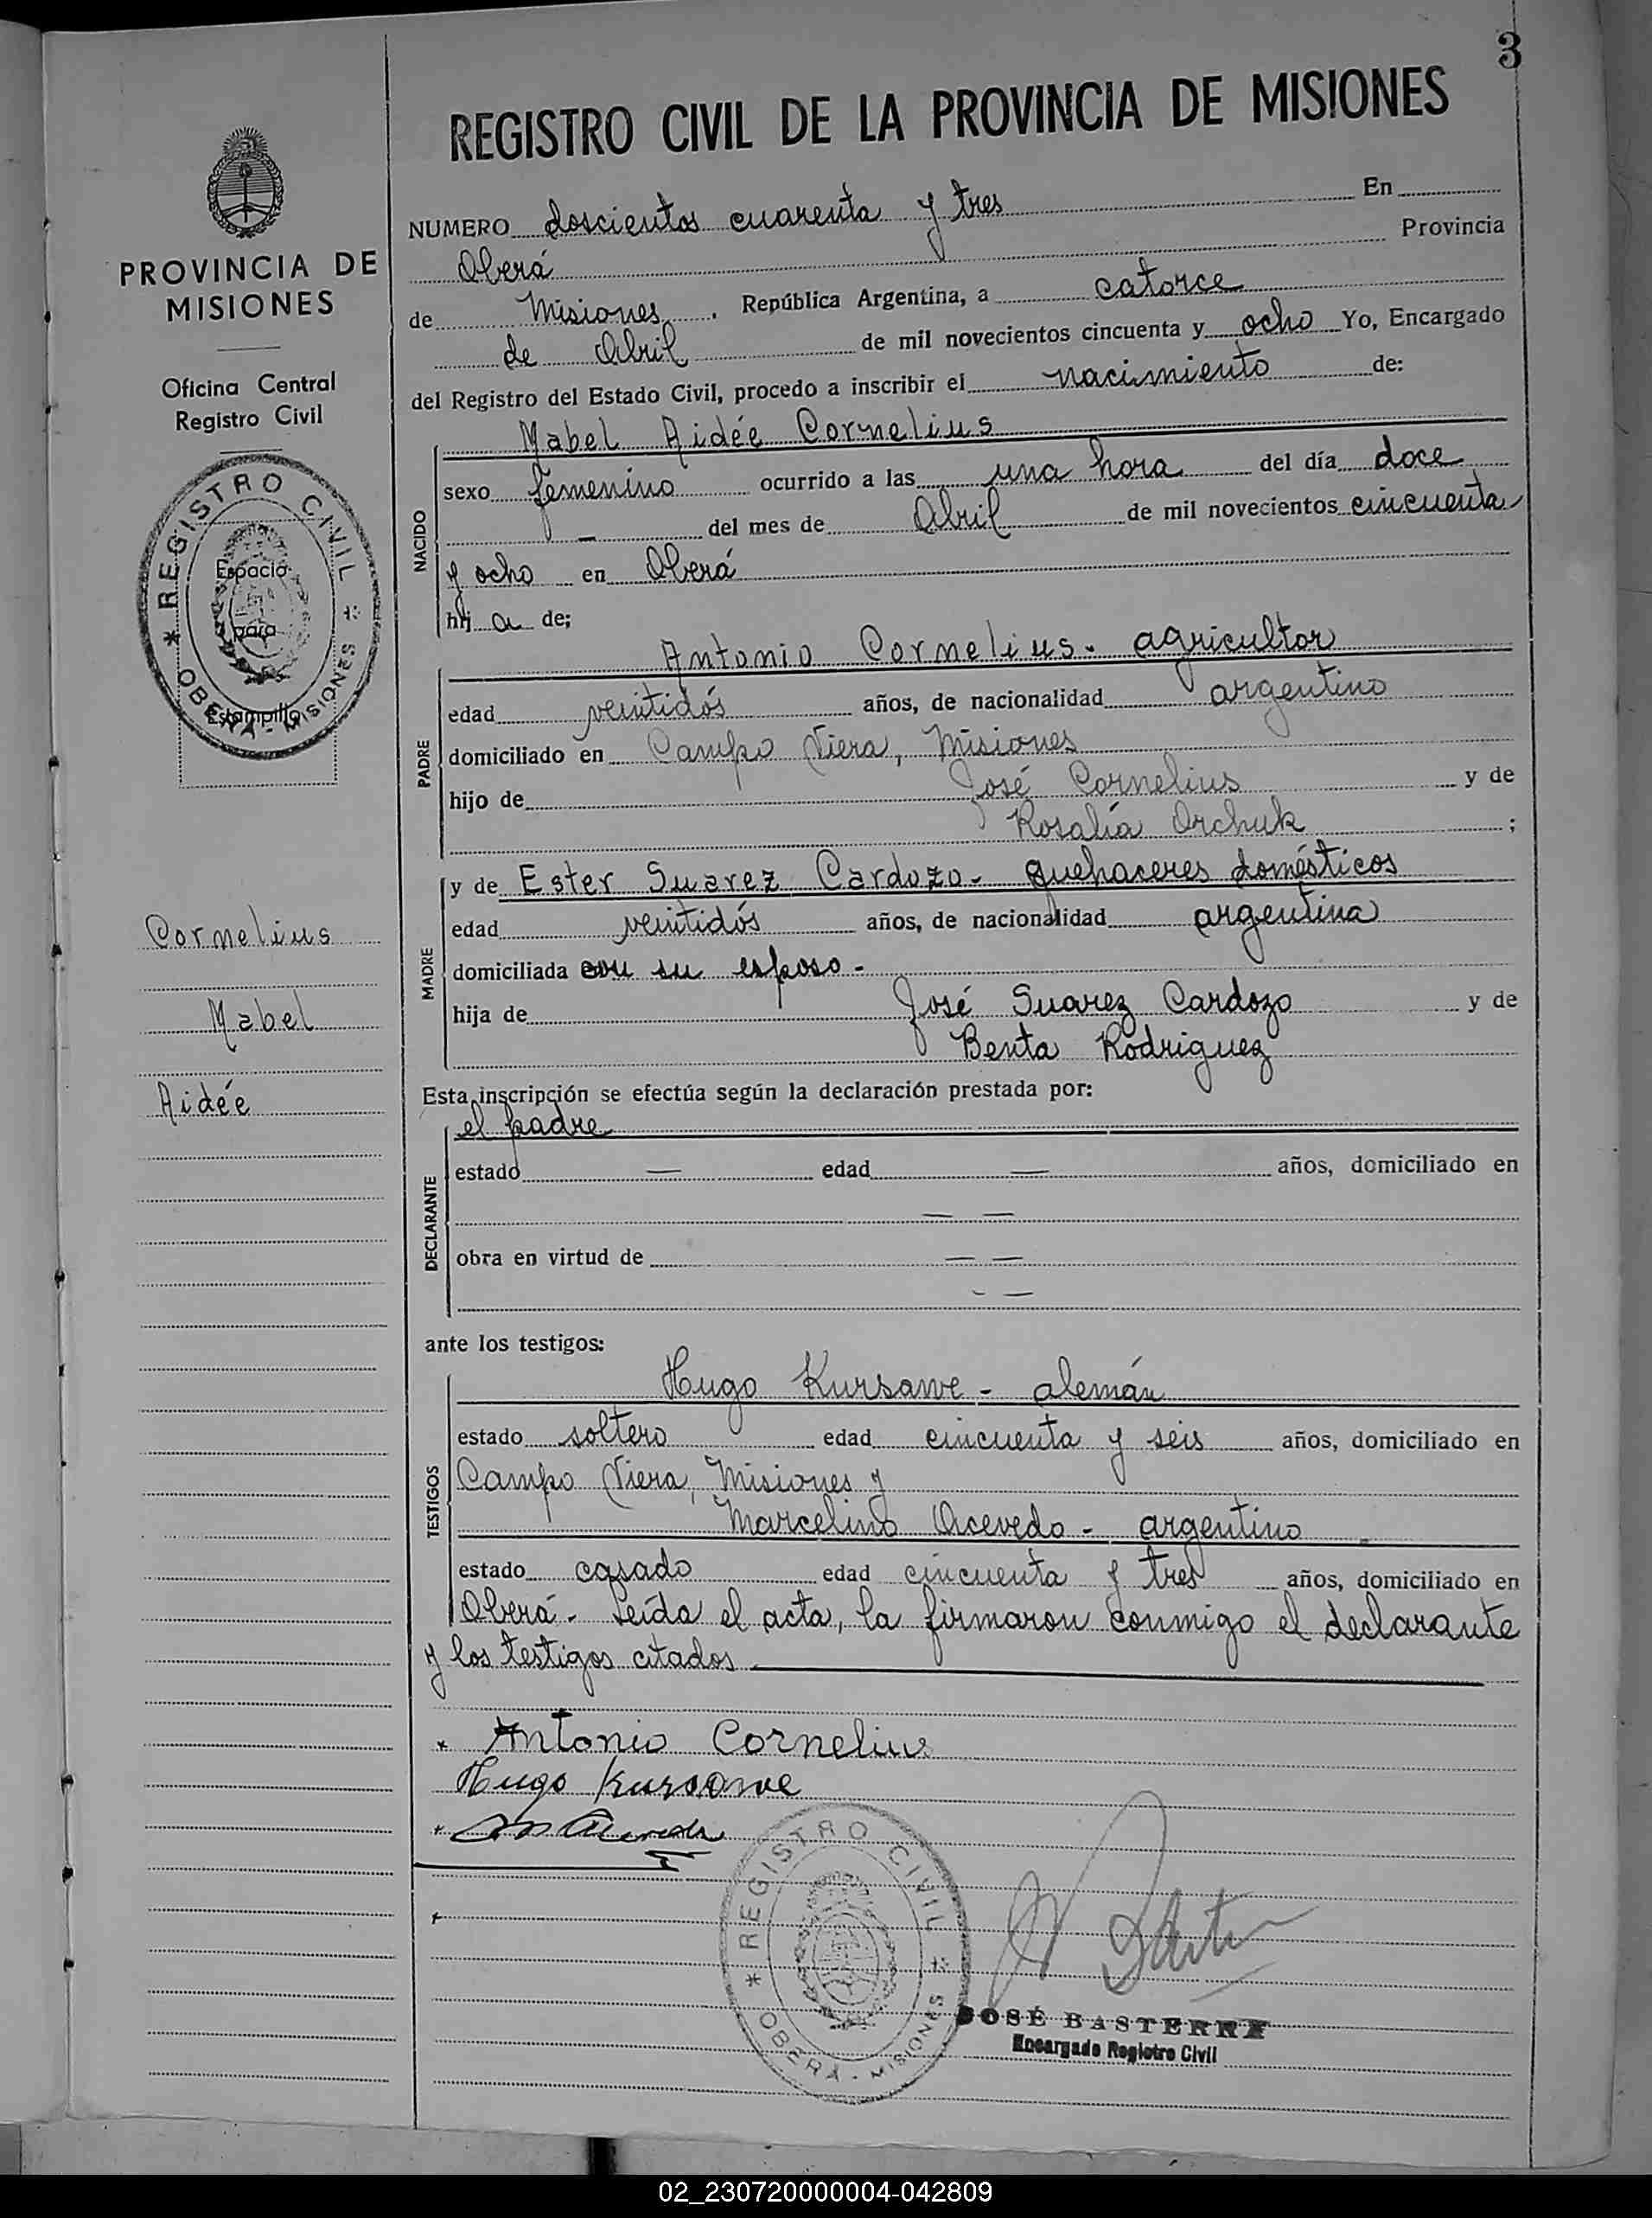 3
REGISTRO CIVIL DE LA PROVINCIA DE MISIONES
PROVINCIA DE
MISIONES
Oficina Central
Registro Civil
* REGISTRO CIVIL *
OBERA - MISIONES
Espacio
para
Estampilla
Cornelius
Mabel
Aidée
NUMERO doscientos cuarenta y tres En
Oberá Provincia
de Misiones, República Argentina, a catorce
de Abril de mil novecientos cincuenta y ocho Yo, Encargado
del Registro del Estado Civil, procedo a inscribir el nacimiento de:
NACIDO
Mabel Aidée Cornelius
sexo femenino ocurrido a las una hora del día doce
- del mes de Abril de mil novecientos cincuenta
y ocho en Oberá
hij a de;
PADRE
Antonio Cornelius. agricultor
edad veintidós años, de nacionalidad argentino
domiciliado en Campo Viera, Misiones
hijo de José Cornelius y de
Rosalía Orchuk ;
MADRE
y de Ester Suarez Cardozo- quehaceres domésticos
edad veintidós años, de nacionalidad argentina
domiciliada con su esposo -
hija de José Suarez Cardozo y de
Benta Rodriguez
Esta inscripción se efectúa según la declaración prestada por:
DECLARANTE
el padre
estado — edad — años, domiciliado en
— —
obra en virtud de — —
- —
ante los testigos:
TESTIGOS
Hugo Kursawe - alemán
estado soltero edad cincuenta y seis años, domiciliado en
Campo Viera, Misiones y
Marcelino Acevedo - argentino
estado casado edad cincuenta y tres años, domiciliado en
Oberá- Leída el acta, la firmaron conmigo el declarante
y los testigos citados
Antonio Cornelius
Hugo Kursawe
* REGISTRO CIVIL *
OBERA - MISIONES
JOSÉ BASTERRA
Encargado Registro Civil
02_230720000004-042809